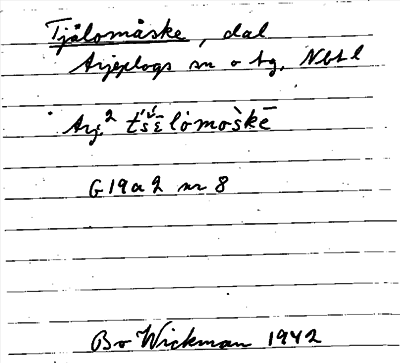 Tjålomåske, dal
Arjeplogs sn o tg, Nbtl
Arj.² t́śɛ̮̄lȯmo̊škē
G 19 a 2 nr 8
Bo Wickman 1942